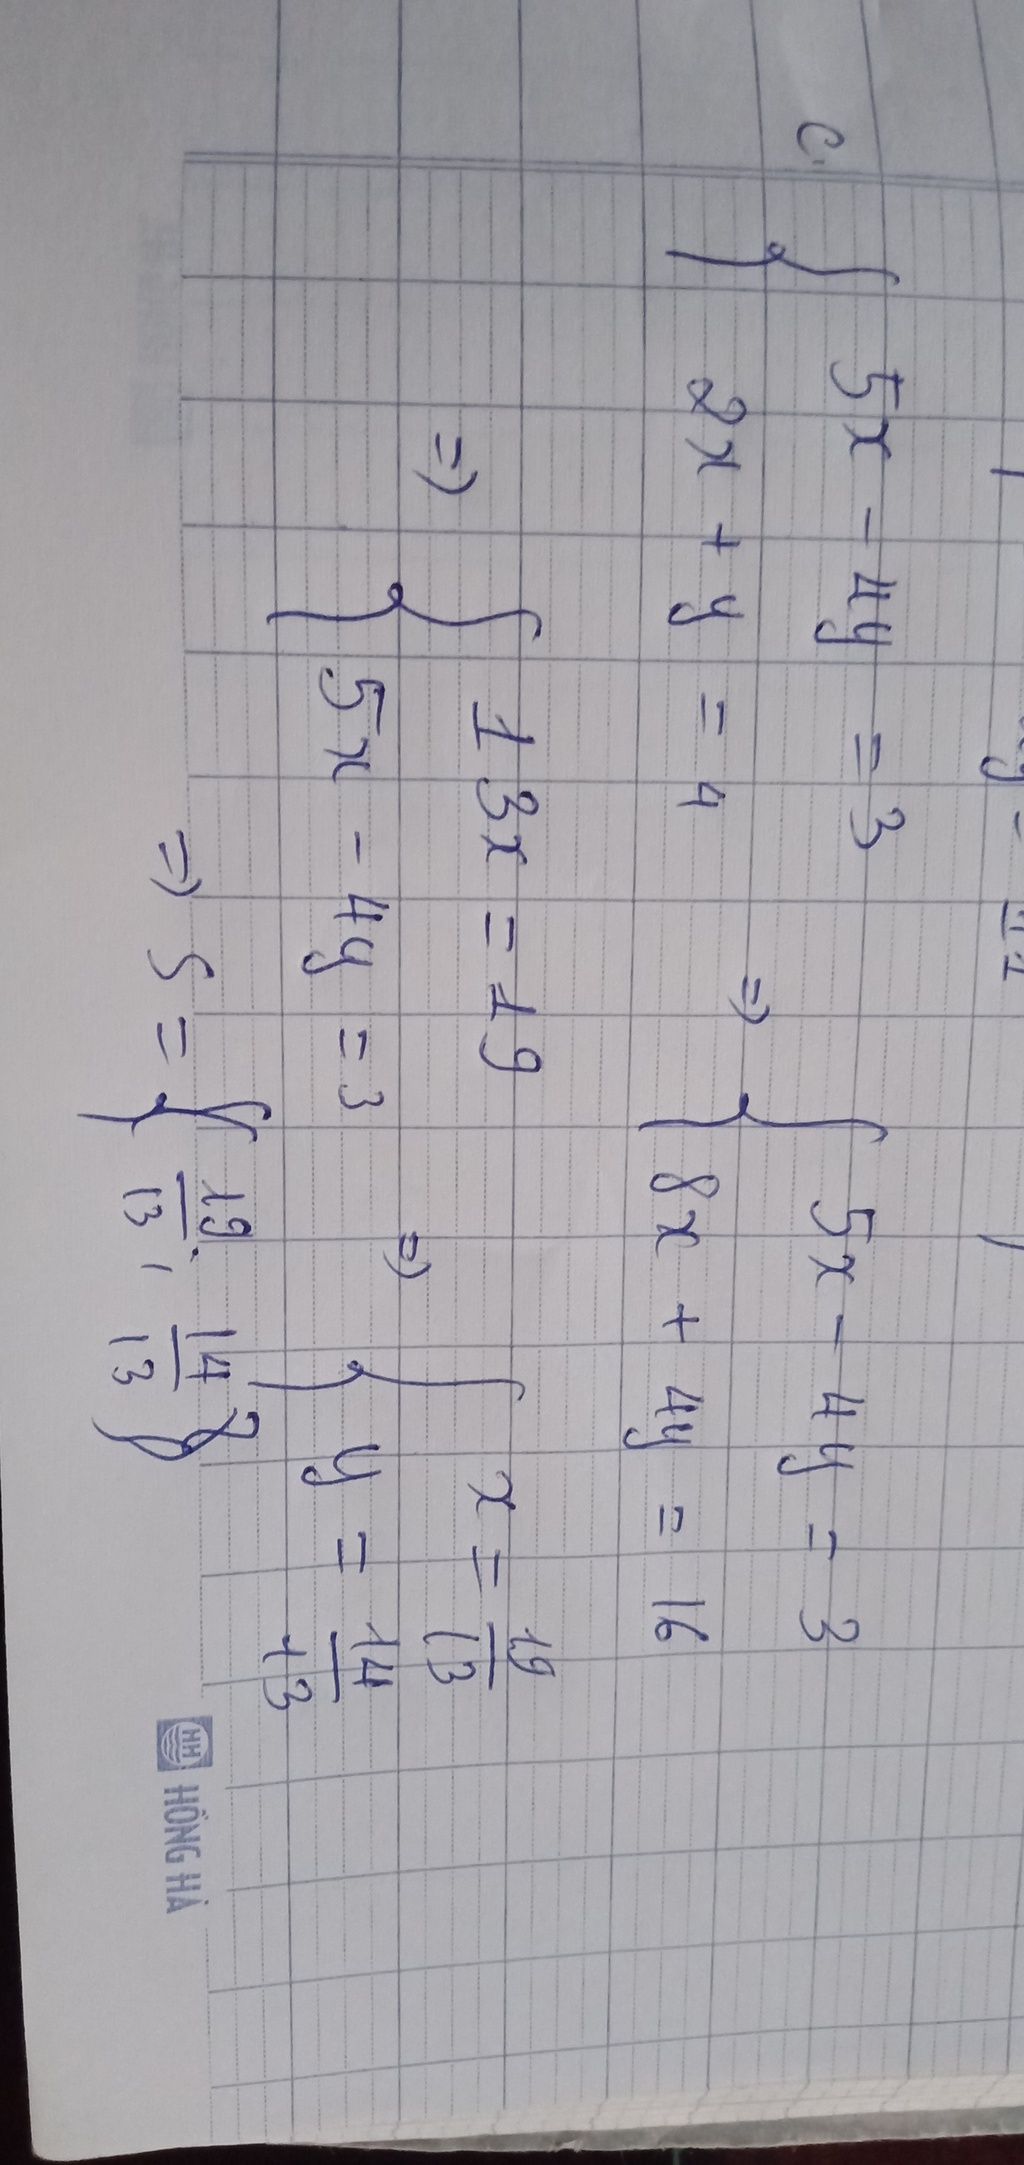 c. { 5x - 4y = 3
2x + y = 4
=> { 5x - 4y = 3
8x + 4y = 16
=> { 13x = 19
5x - 4y = 3
=> { x = 19/13
y = 14/13
=> S = { 19/13 ; 14/13 }
HH HỒNG HÀ